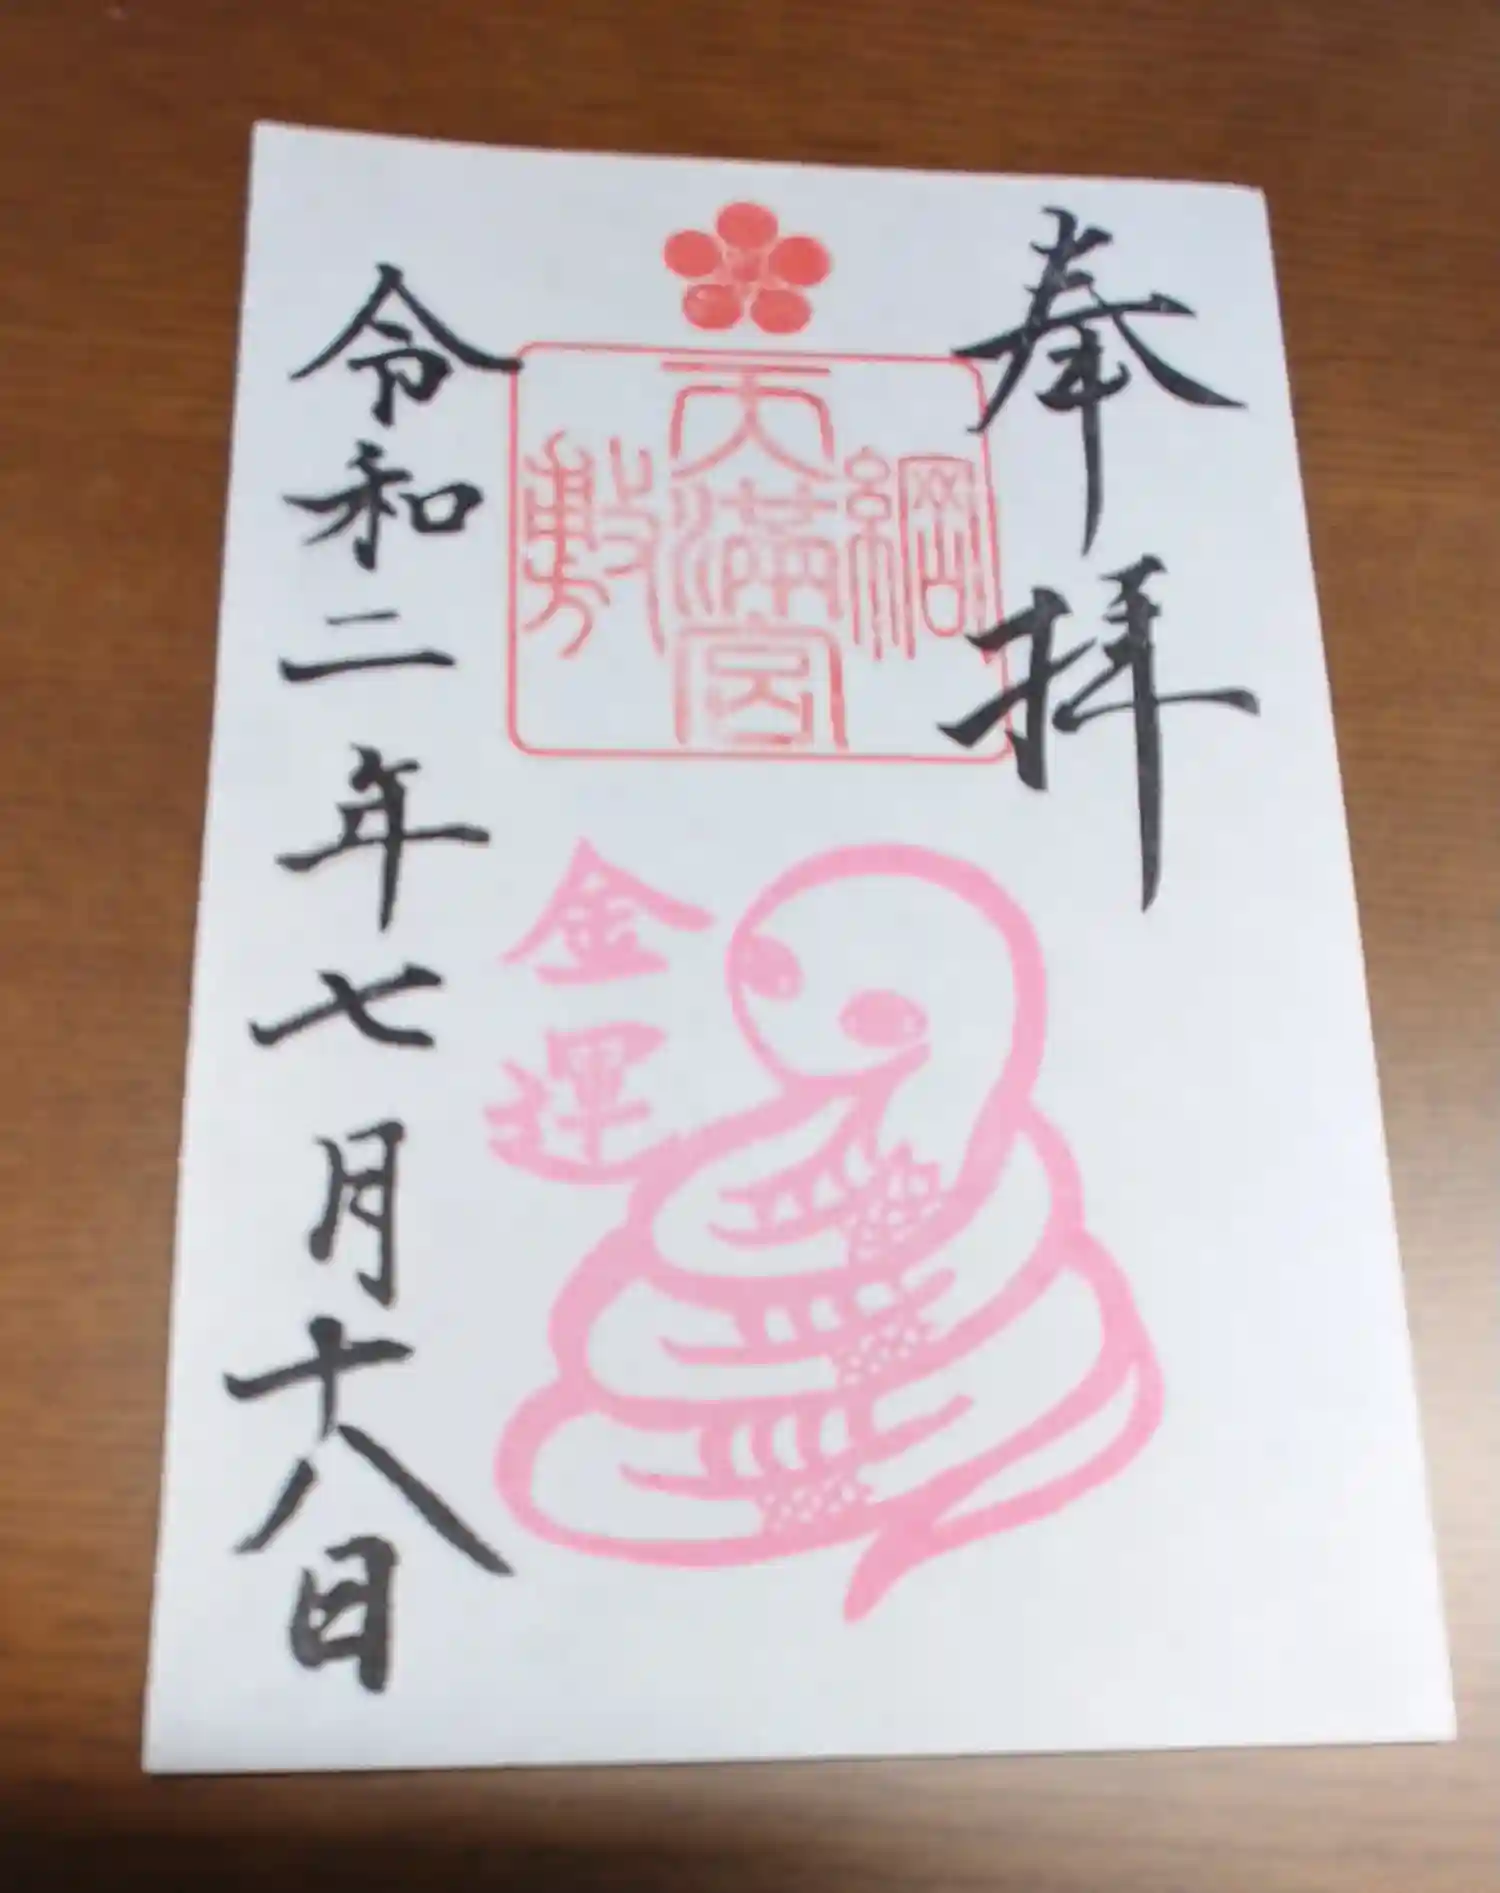 奉拝
綱敷天満宮
金運
令和二年七月十八日